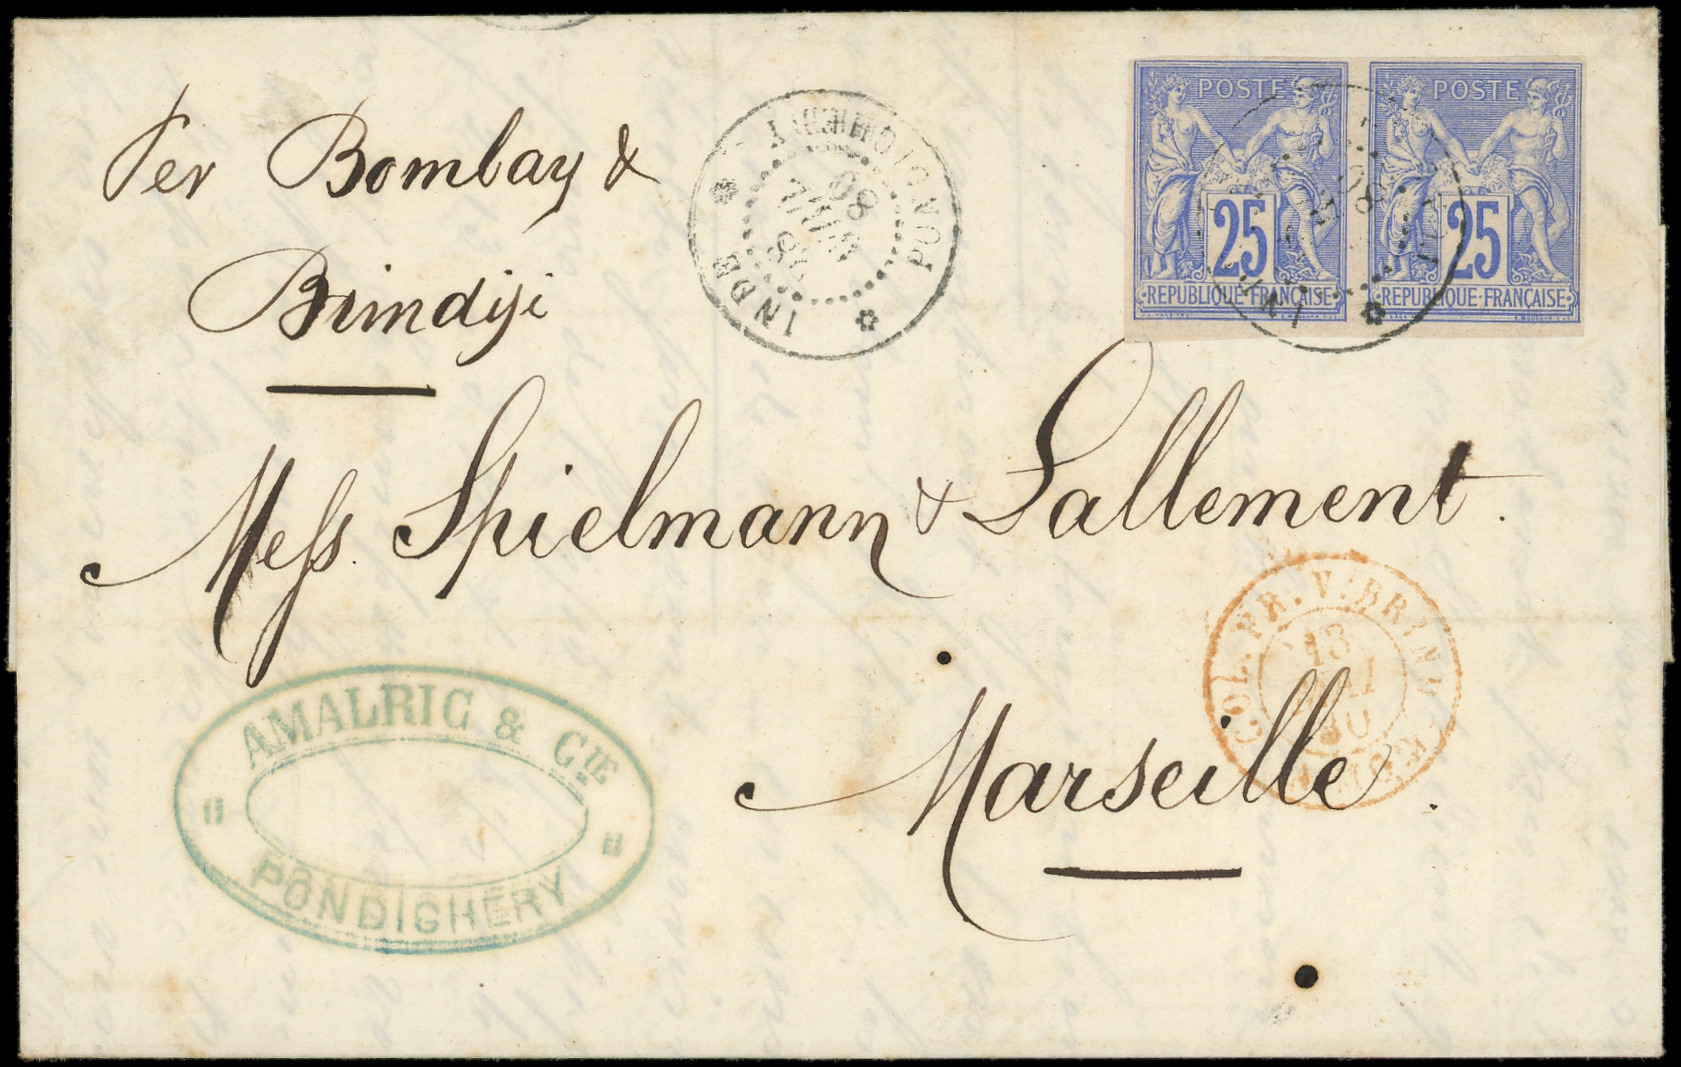 Per Bombay &
Brindisi
INDE PONDICHERY
28
AVRIL
80
POSTE
25
REPUBLIQUE FRANÇAISE
POSTE
25
REPUBLIQUE FRANÇAISE
Mess. Spielmann & Lallement.
Marseille.
COL. FR. V. BRIND
18
MAI
80
AMALRIC & CIE
PONDICHÉRY